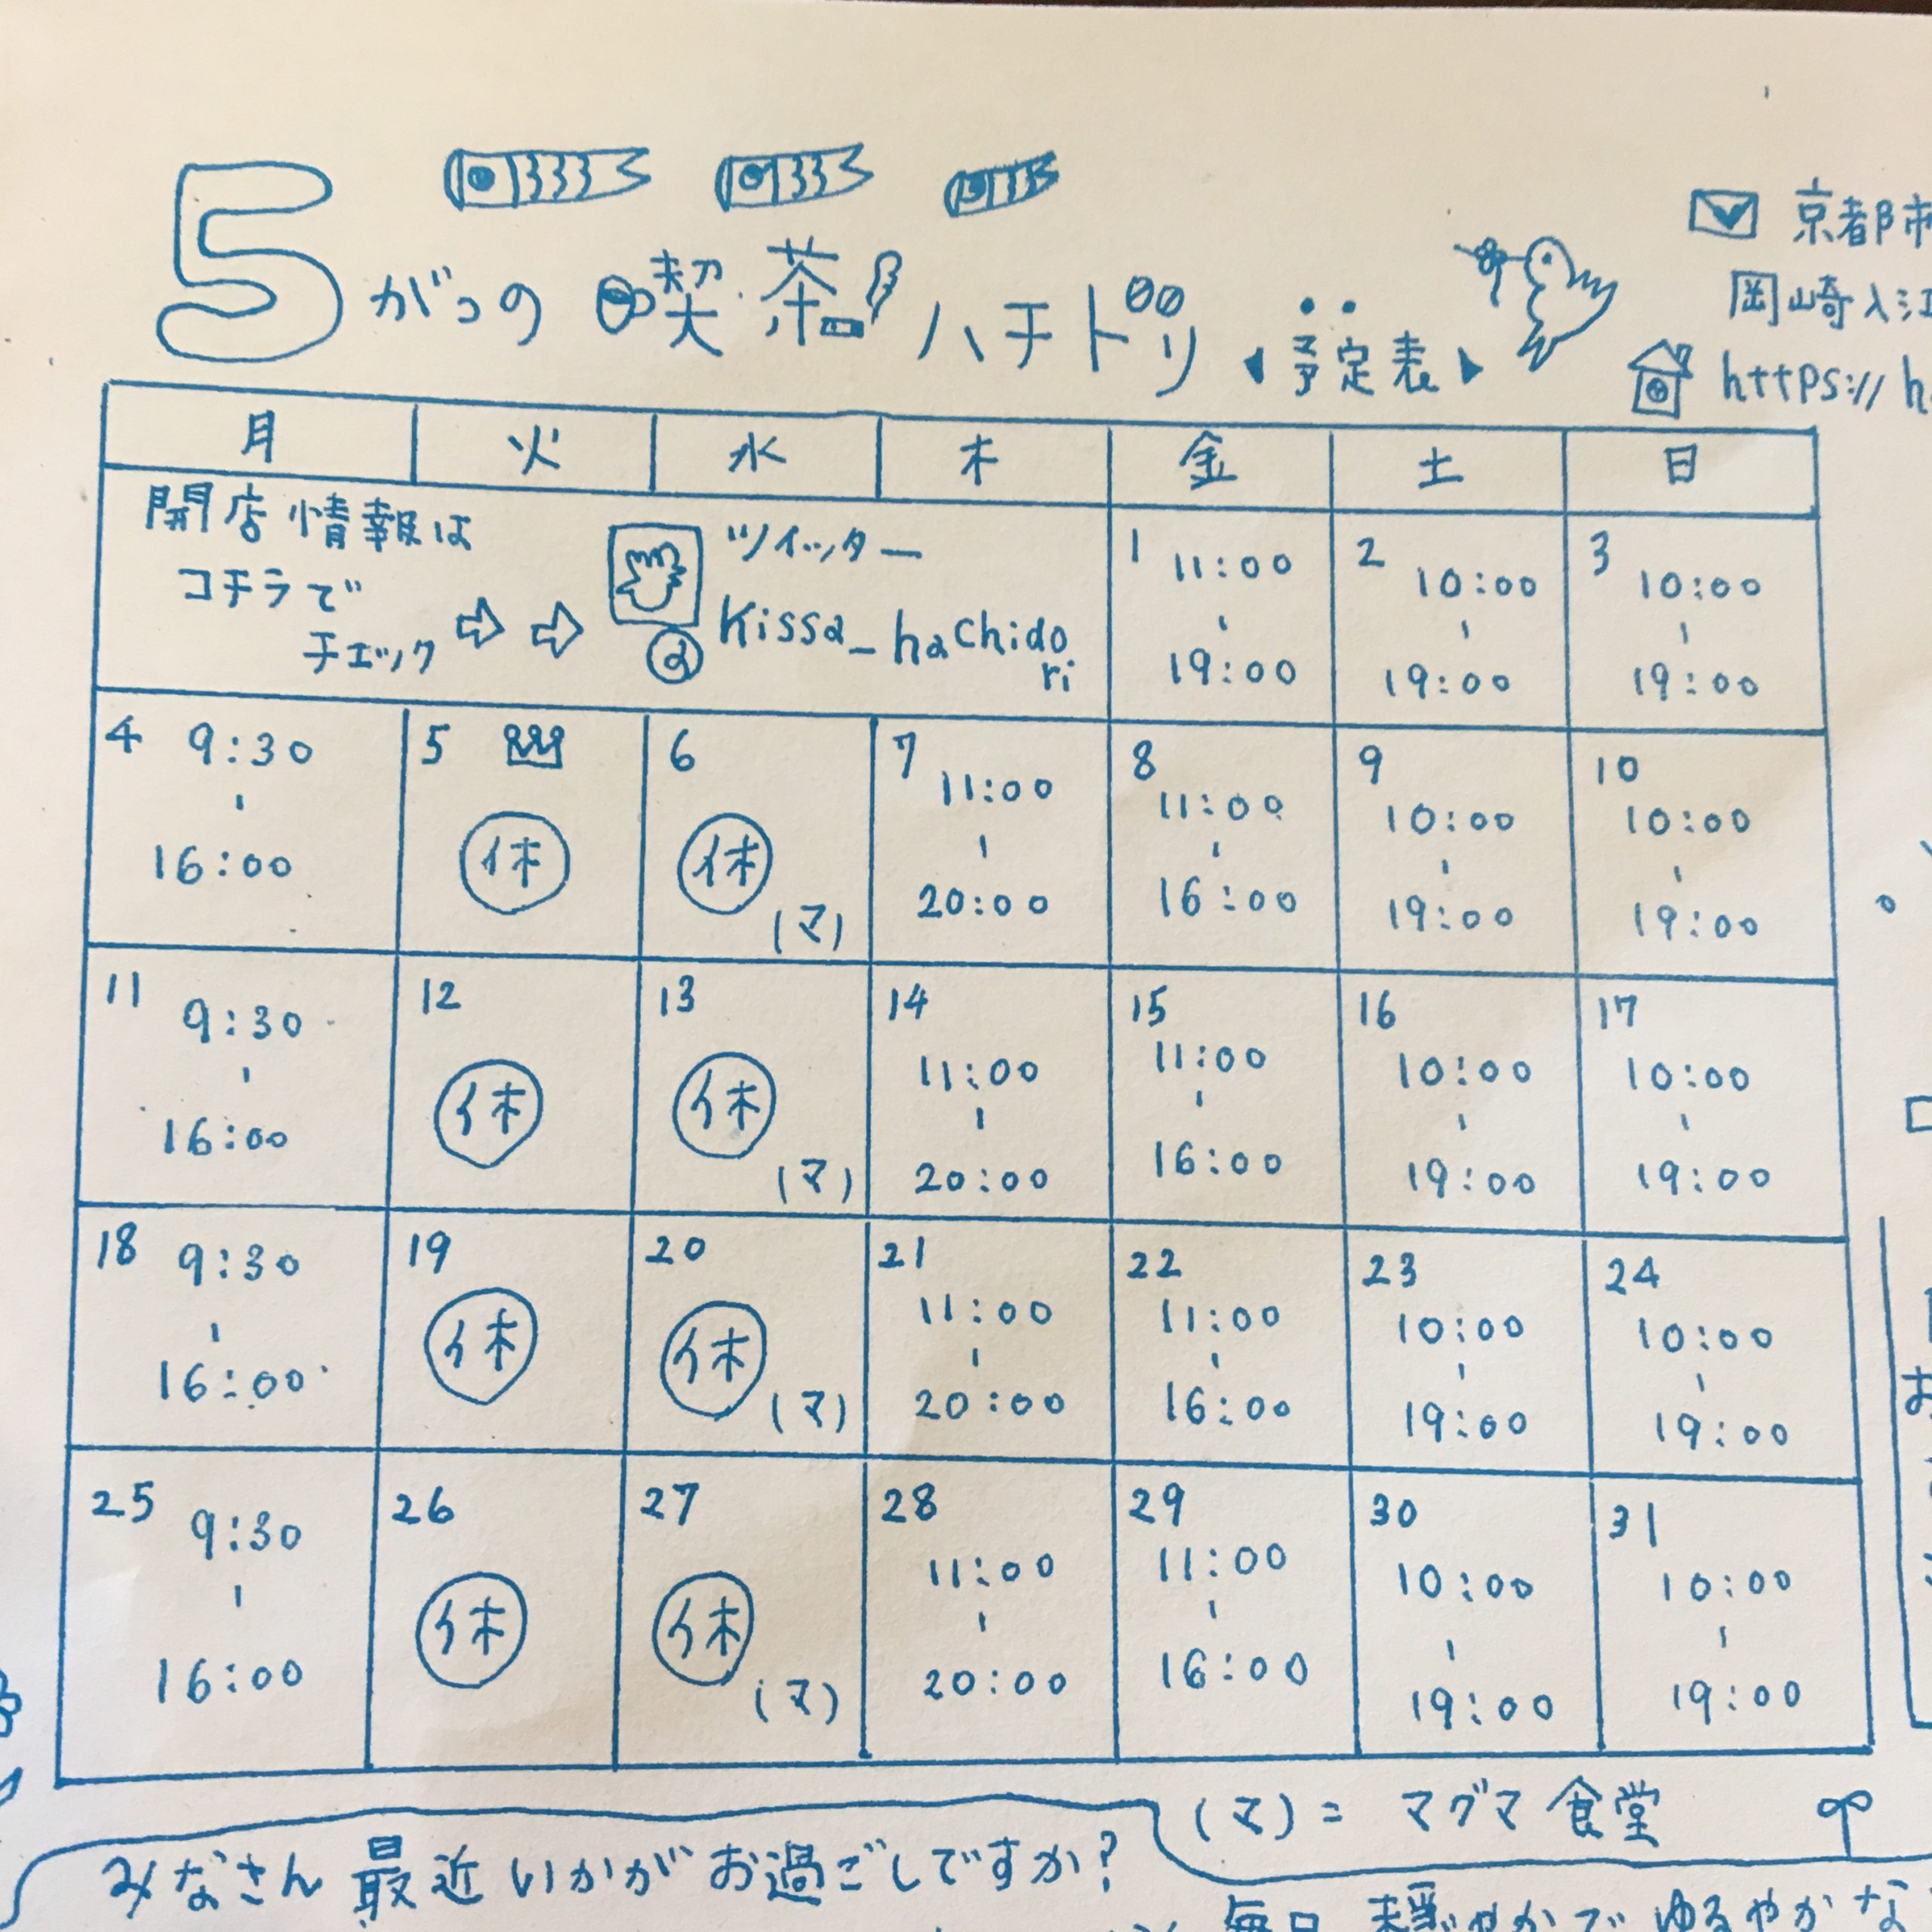 5がつの喫茶ハチドリ 予定表
京都市
岡崎入江
https://h
月 火 水 木 金 土 日
開店情報は
コチラで
チェック
ツイッター
@kissa_hachido
ri
1 11:00 - 19:00
2 10:00 - 19:00
3 10:00 - 19:00
4 9:30 - 16:00
5 休
6 休 (マ)
7 11:00 - 20:00
8 11:00 - 16:00
9 10:00 - 19:00
10 10:00 - 19:00
11 9:30 - 16:00
12 休
13 休 (マ)
14 11:00 - 20:00
15 11:00 - 16:00
16 10:00 - 19:00
17 10:00 - 19:00
18 9:30 - 16:00
19 休
20 休 (マ)
21 11:00 - 20:00
22 11:00 - 16:00
23 10:00 - 19:00
24 10:00 - 19:00
25 9:30 - 16:00
26 休
27 休 (マ)
28 11:00 - 20:00
29 11:00 - 16:00
30 10:00 - 19:00
31 10:00 - 19:00
(マ)= マグマ食堂
みなさん最近いかがお過ごしですか?
毎日穏やかでゆるやかな